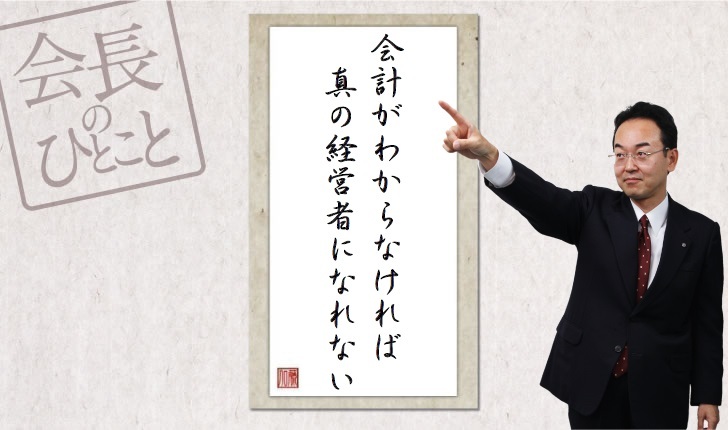 会長
の
ひとこと
会計がわからなければ
真の経営者になれない